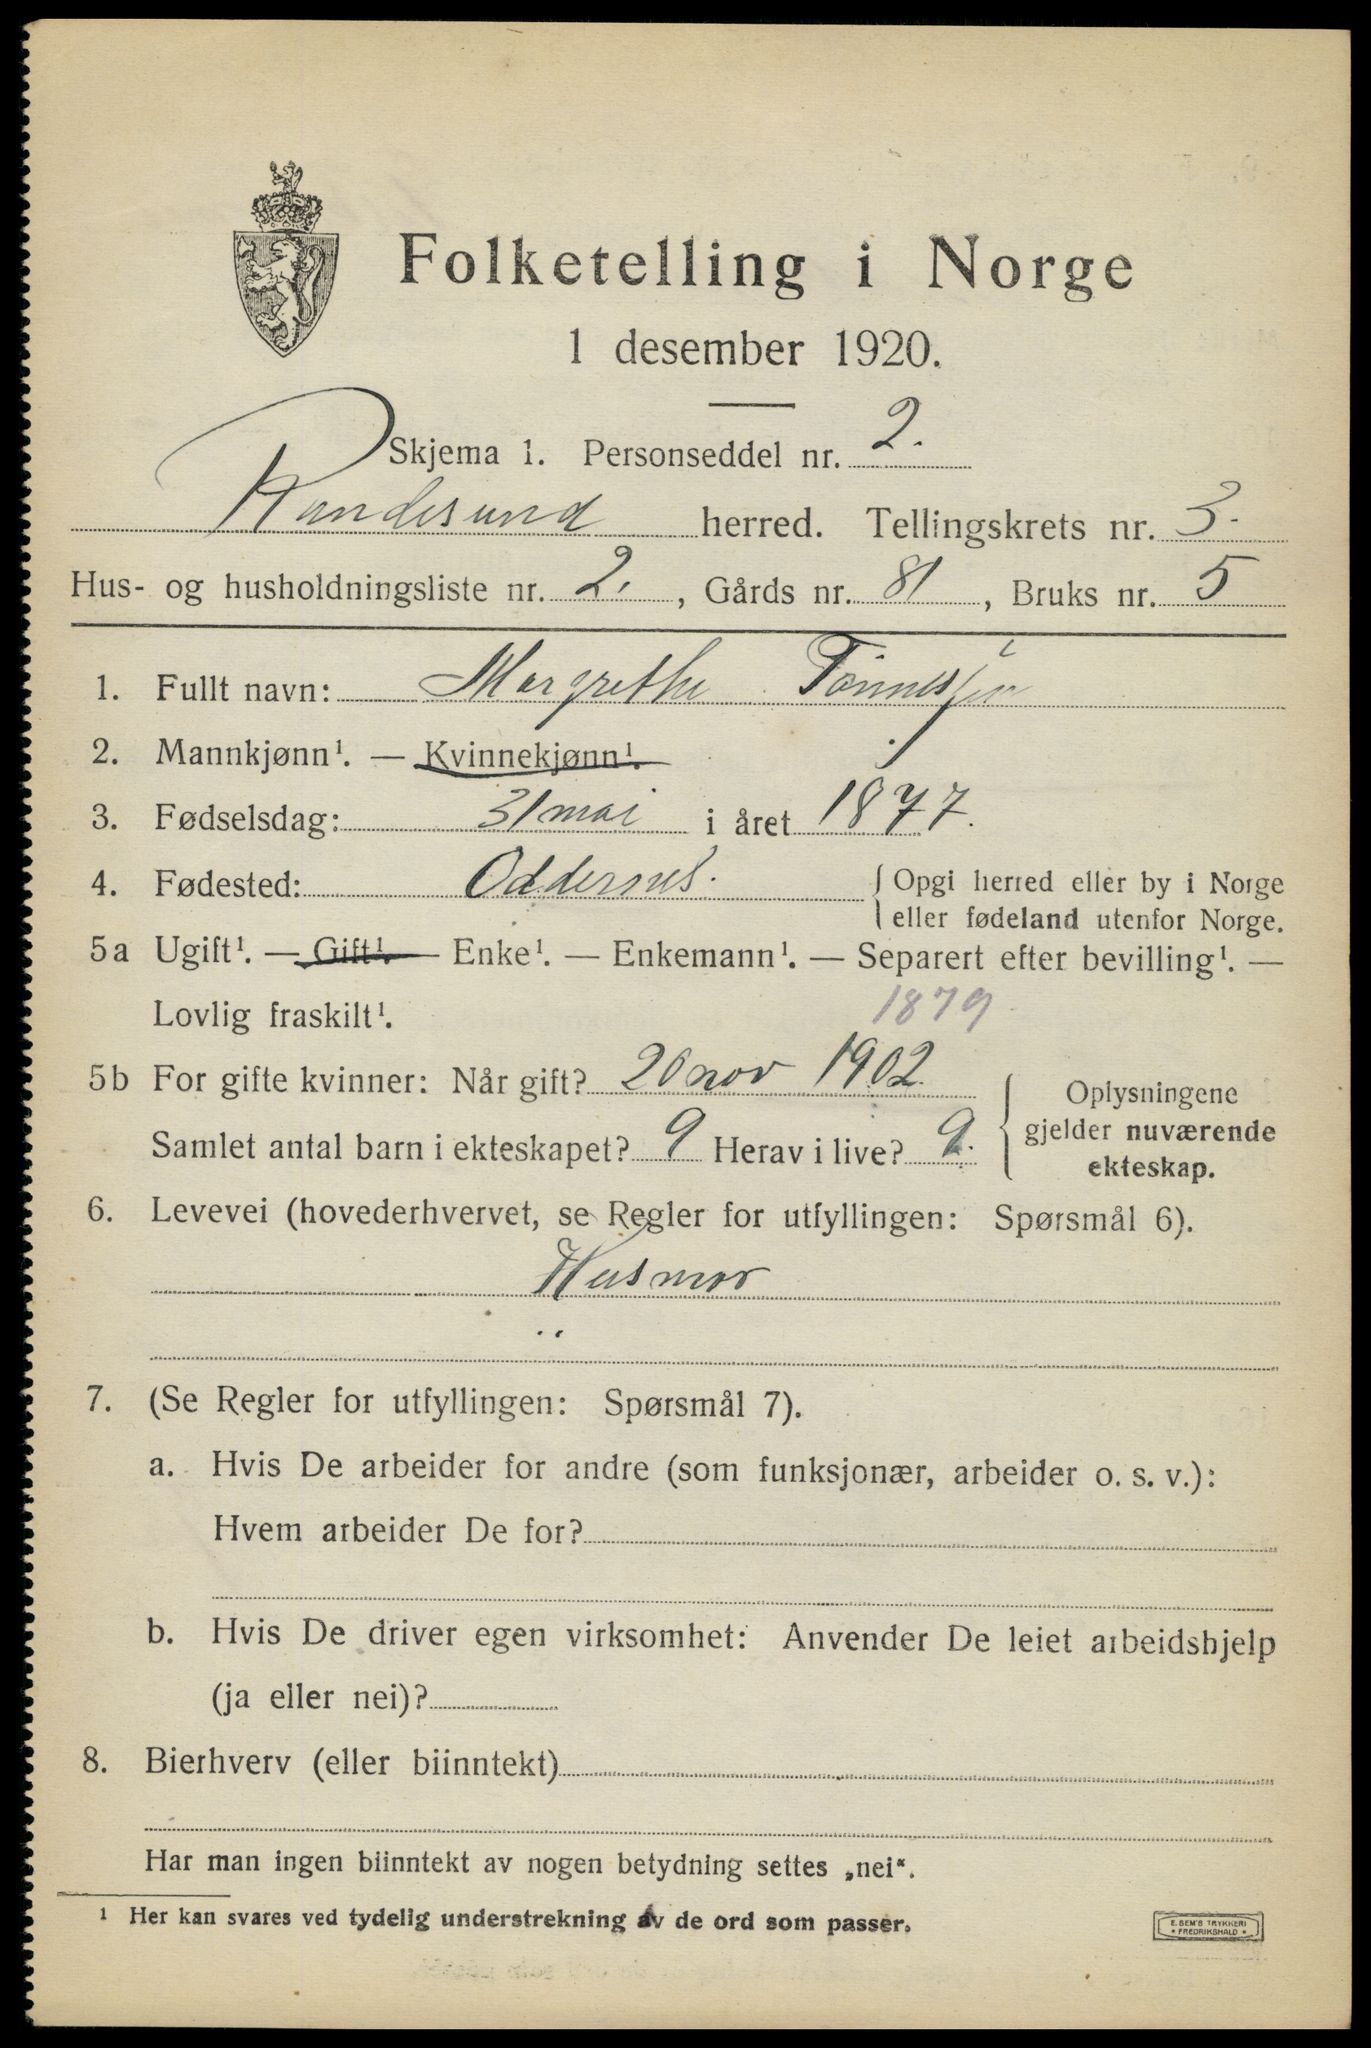 Folketelling i Norge
1 desember 1920.
Skjema 1. Personseddel nr. 2.
Randesund herred. Tellingskrets nr. 3.
Hus- og husholdningsliste nr. 2. , Gårds nr. 81 , Bruks nr. 5
1. Fullt navn: Margrethe Tønnessen
2. Mannkjønn¹. — Kvinnekjønn¹.
3. Fødselsdag: 31 mai i året 1877.
4. Fødested: Oddernes. { Opgi herred eller by i Norge
eller fødeland utenfor Norge.
5a Ugift¹. — Gift¹. — Enke¹. — Enkemann¹. — Separert efter bevilling¹. —
Lovlig fraskilt¹. 1879
5b For gifte kvinner: Når gift? 20 nov 1902. { Oplysningene
Samlet antal barn i ekteskapet? 9 Herav i live? 9. gjelder nuværende
ekteskap.
6. Levevei (hovederhvervet, se Regler for utfyllingen: Spørsmål 6).
Husmor
7. (Se Regler for utfyllingen: Spørsmål 7).
a. Hvis De arbeider for andre (som funksjonær, arbeider o. s. v.):
Hvem arbeider De for?
b. Hvis De driver egen virksomhet: Anvender De leiet arbeidshjelp
(ja eller nei)?
8. Bierhverv (eller biinntekt)
Har man ingen biinntekt av nogen betydning settes „nei“.
¹ Her kan svares ved tydelig understrekning av de ord som passer.
E. SEM'S TRYKKERI
• FREDRIKSHALD •